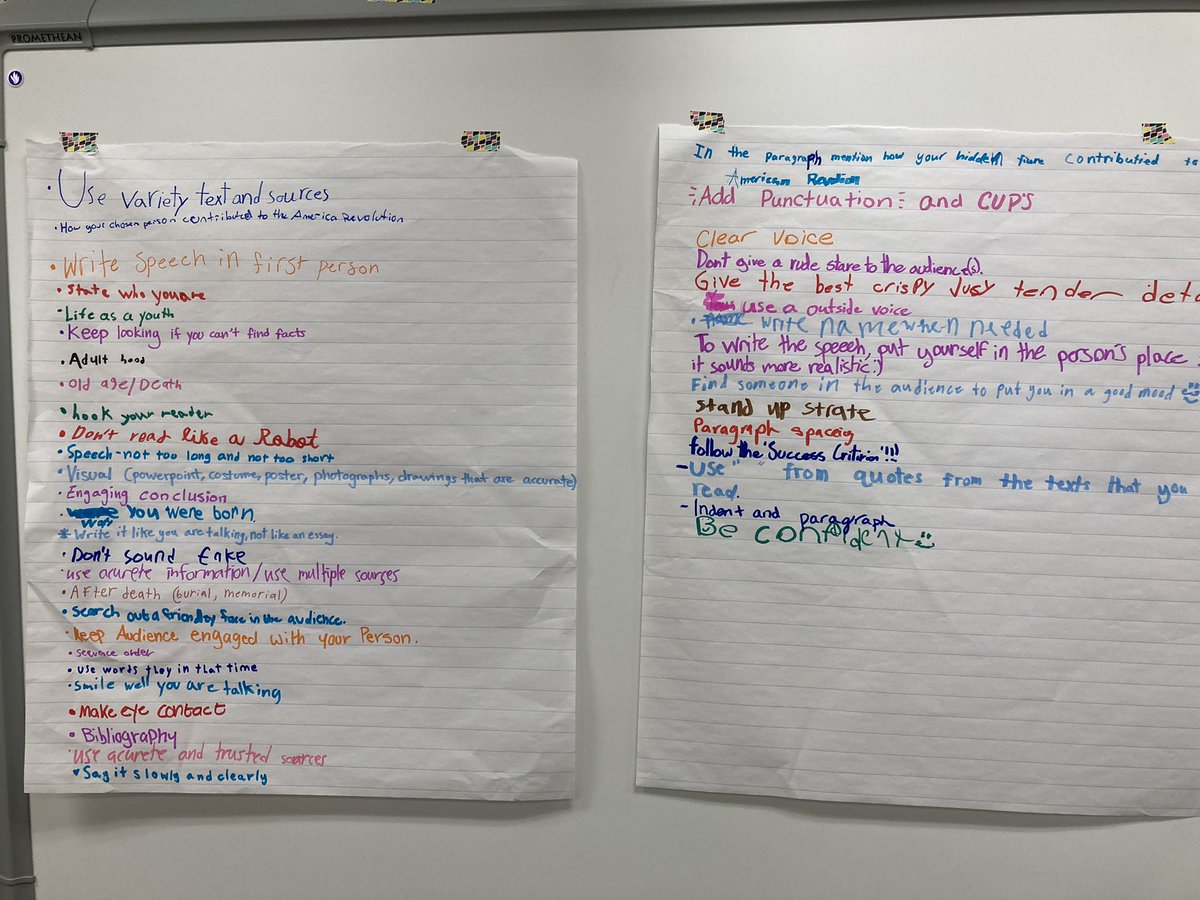 PROMETHEAN
• Use variety text and sources
• How your chosen person contributed to the America Revolution
• Write Speech in first person
• State who you are
• Life as a youth
• Keep looking if you can't find facts
• Adult hood
• Old age/Death
• hook your reader
• Don't read like a Robot
• Speech-not too long and not too short
• Visual (powerpoint, costume, poster, photographs, drawings that are accurate)
• Engaging conclusion
• you were born.
* Write it like you are talking, not like an essay.
• Don't sound fake
• use acurete information/use multiple sources
• After death (burial, memorial)
• Search out a friendley face in the audience.
• Keep Audience engaged with your Person.
• sequence order
• use words they in that time
• smile well you are talking
• Make eye contact
• Bibliography
• Use acurete and trusted sources
• Say it slowly and clearly
In the Paragraph mention how your contributied to
American
Add Punctuation and CUPS
Clear voice
Dont give a rude stare to the audience(s).
Give the best crispy Jusy tender deta
use a outside voice
• write name when needed
To write the speech, put yourself in the person's place
it sounds more realistic :)
Find someone in the audience to put you in a good mood
Stand up strate
Paragraph spaceing
follow the "Success Criteria"!!!
- Use " " from quotes from the texts that you
read.
- Indent and paragraph
Be confident